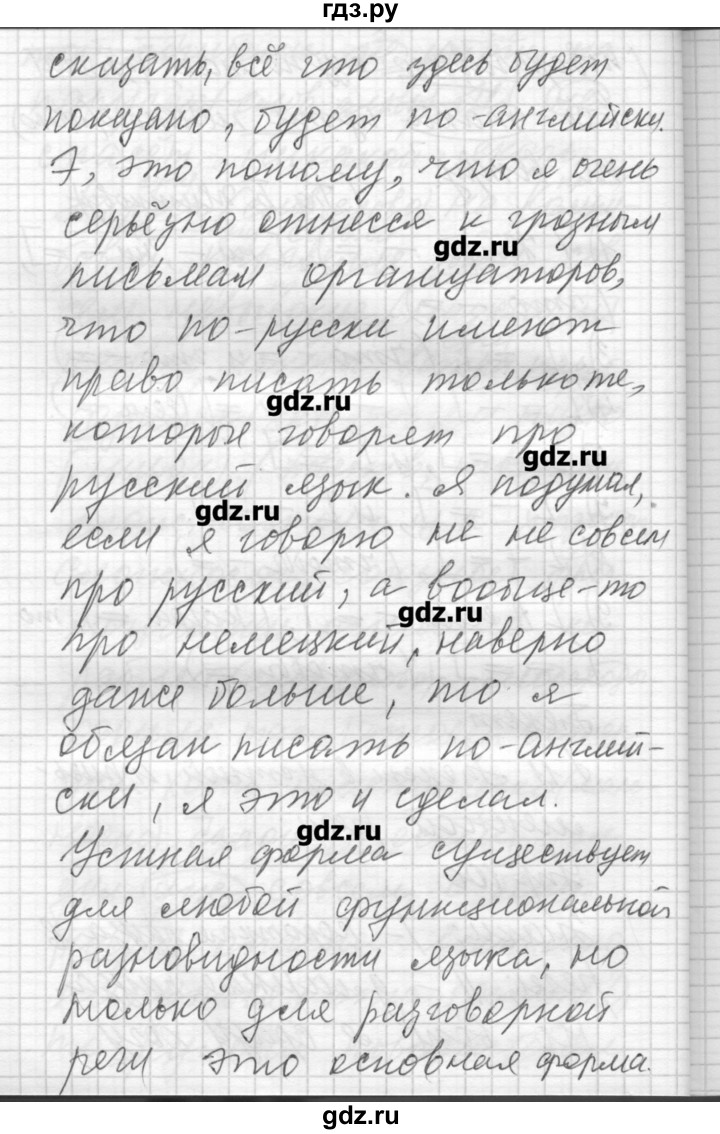 гдз.ру
сказать, всё что здесь будет
показано, будет по-английски.
Э, это потому, что я очень
серьёзно отнесся к грозным
gdz.ru
письмам организаторов,
что по-русски имеют
право писать только те,
gdz.ru
которые говорят про
gdz.ru
русский язык. Я подумал,
gdz.ru
если я говорю не не совсем
про русский, а вообще-то
gdz.ru
про немецкий, наверно
даже больше, то я
обязан писать по-англий-
ски, я это и сделал.
gdz.ru
Устная форма существует
для любой функциональной
разновидности языка, но
только для разговорной
речи это основная форма.
gdz.ru